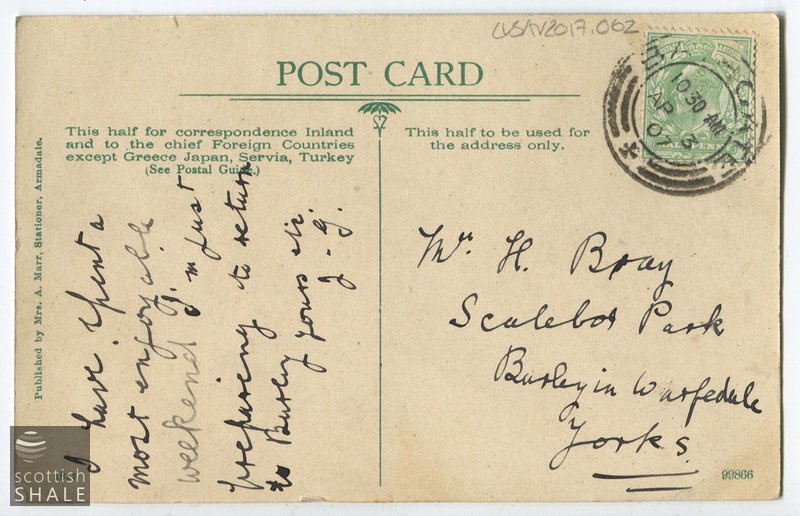 LVSAV2017.062
POST CARD
This half for correspondence Inland
and to the chief Foreign Countries
except Greece Japan, Servia, Turkey
(See Postal Guide.)
This half to be used for
the address only.
10 30 AM
AP 3
07
Published by Mrs. A. Marr, Stationer, Armadale.
I have spent a
most enjoyable
weekend I'm just
preparing to return
to Burley yours etc.
J-G.
Mr H. Bray
Scalebor Park
Burley in Warfedale
Yorks
99866
scottish
SHALE